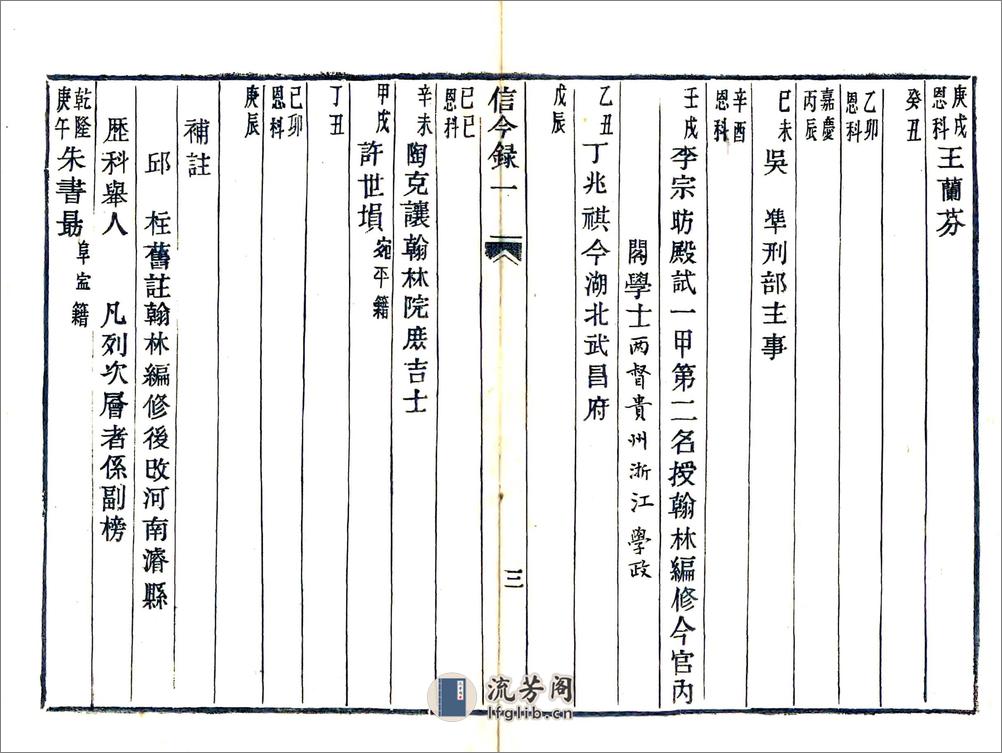 庚戌恩科王蘭芬
癸丑
乙卯恩科
嘉慶丙辰
己未吳凖刑部主事
辛酉恩科
壬戌李宗昉殿試一甲第二名授翰林編修今官內
閣學士两督貴州浙江學政
乙丑丁兆祺今湖北武昌府
戊辰
信今録一
三
己巳恩科
辛未陶克讓翰林院庶吉士
甲戌許世塤宛平籍
丁丑
己卯恩科
庚辰
補註
邱桂舊註翰林編修後改河南濬縣
歴科舉人 凡列次層者係副榜
乾隆庚午朱書勗阜寍籍
流芳阁
lfglib.cn